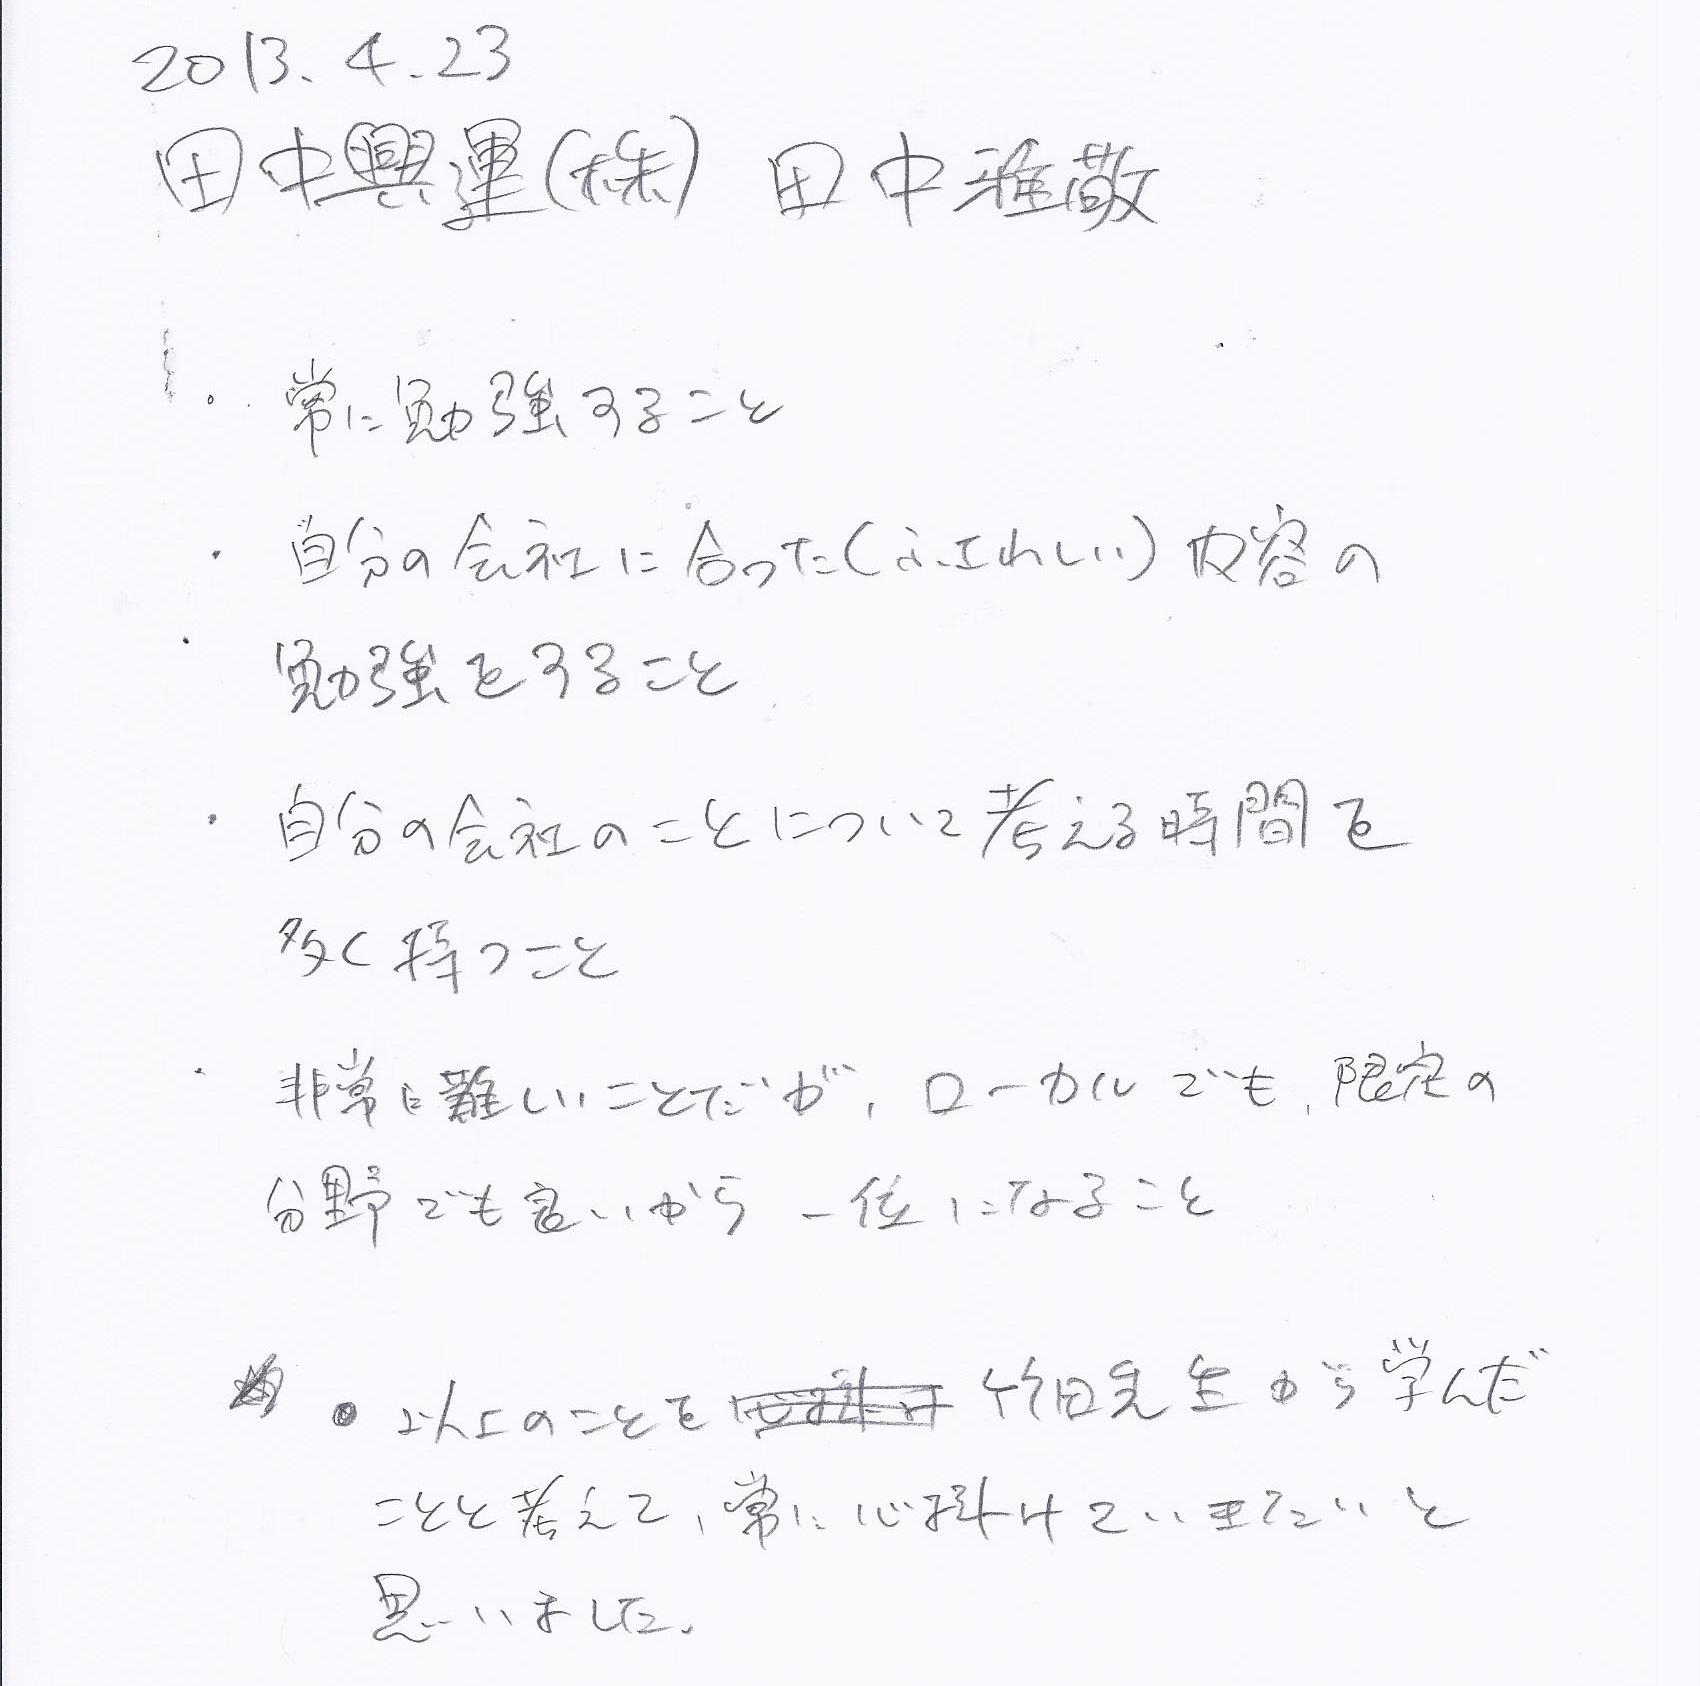 2013.4.23
田中興運(株) 田中雅敬
・常に勉強すること
・自分の会社に合った(ふさわしい)内容の
勉強をすること
・自分の会社のことについて考える時間を
多く持つこと
・非常に難しいことだが、ローカルでも、限定の
分野でも良いから一位になること
● 以上のことを 竹田先生から学んだ
ことと考えて、常に心掛けていきたいと
思いました。